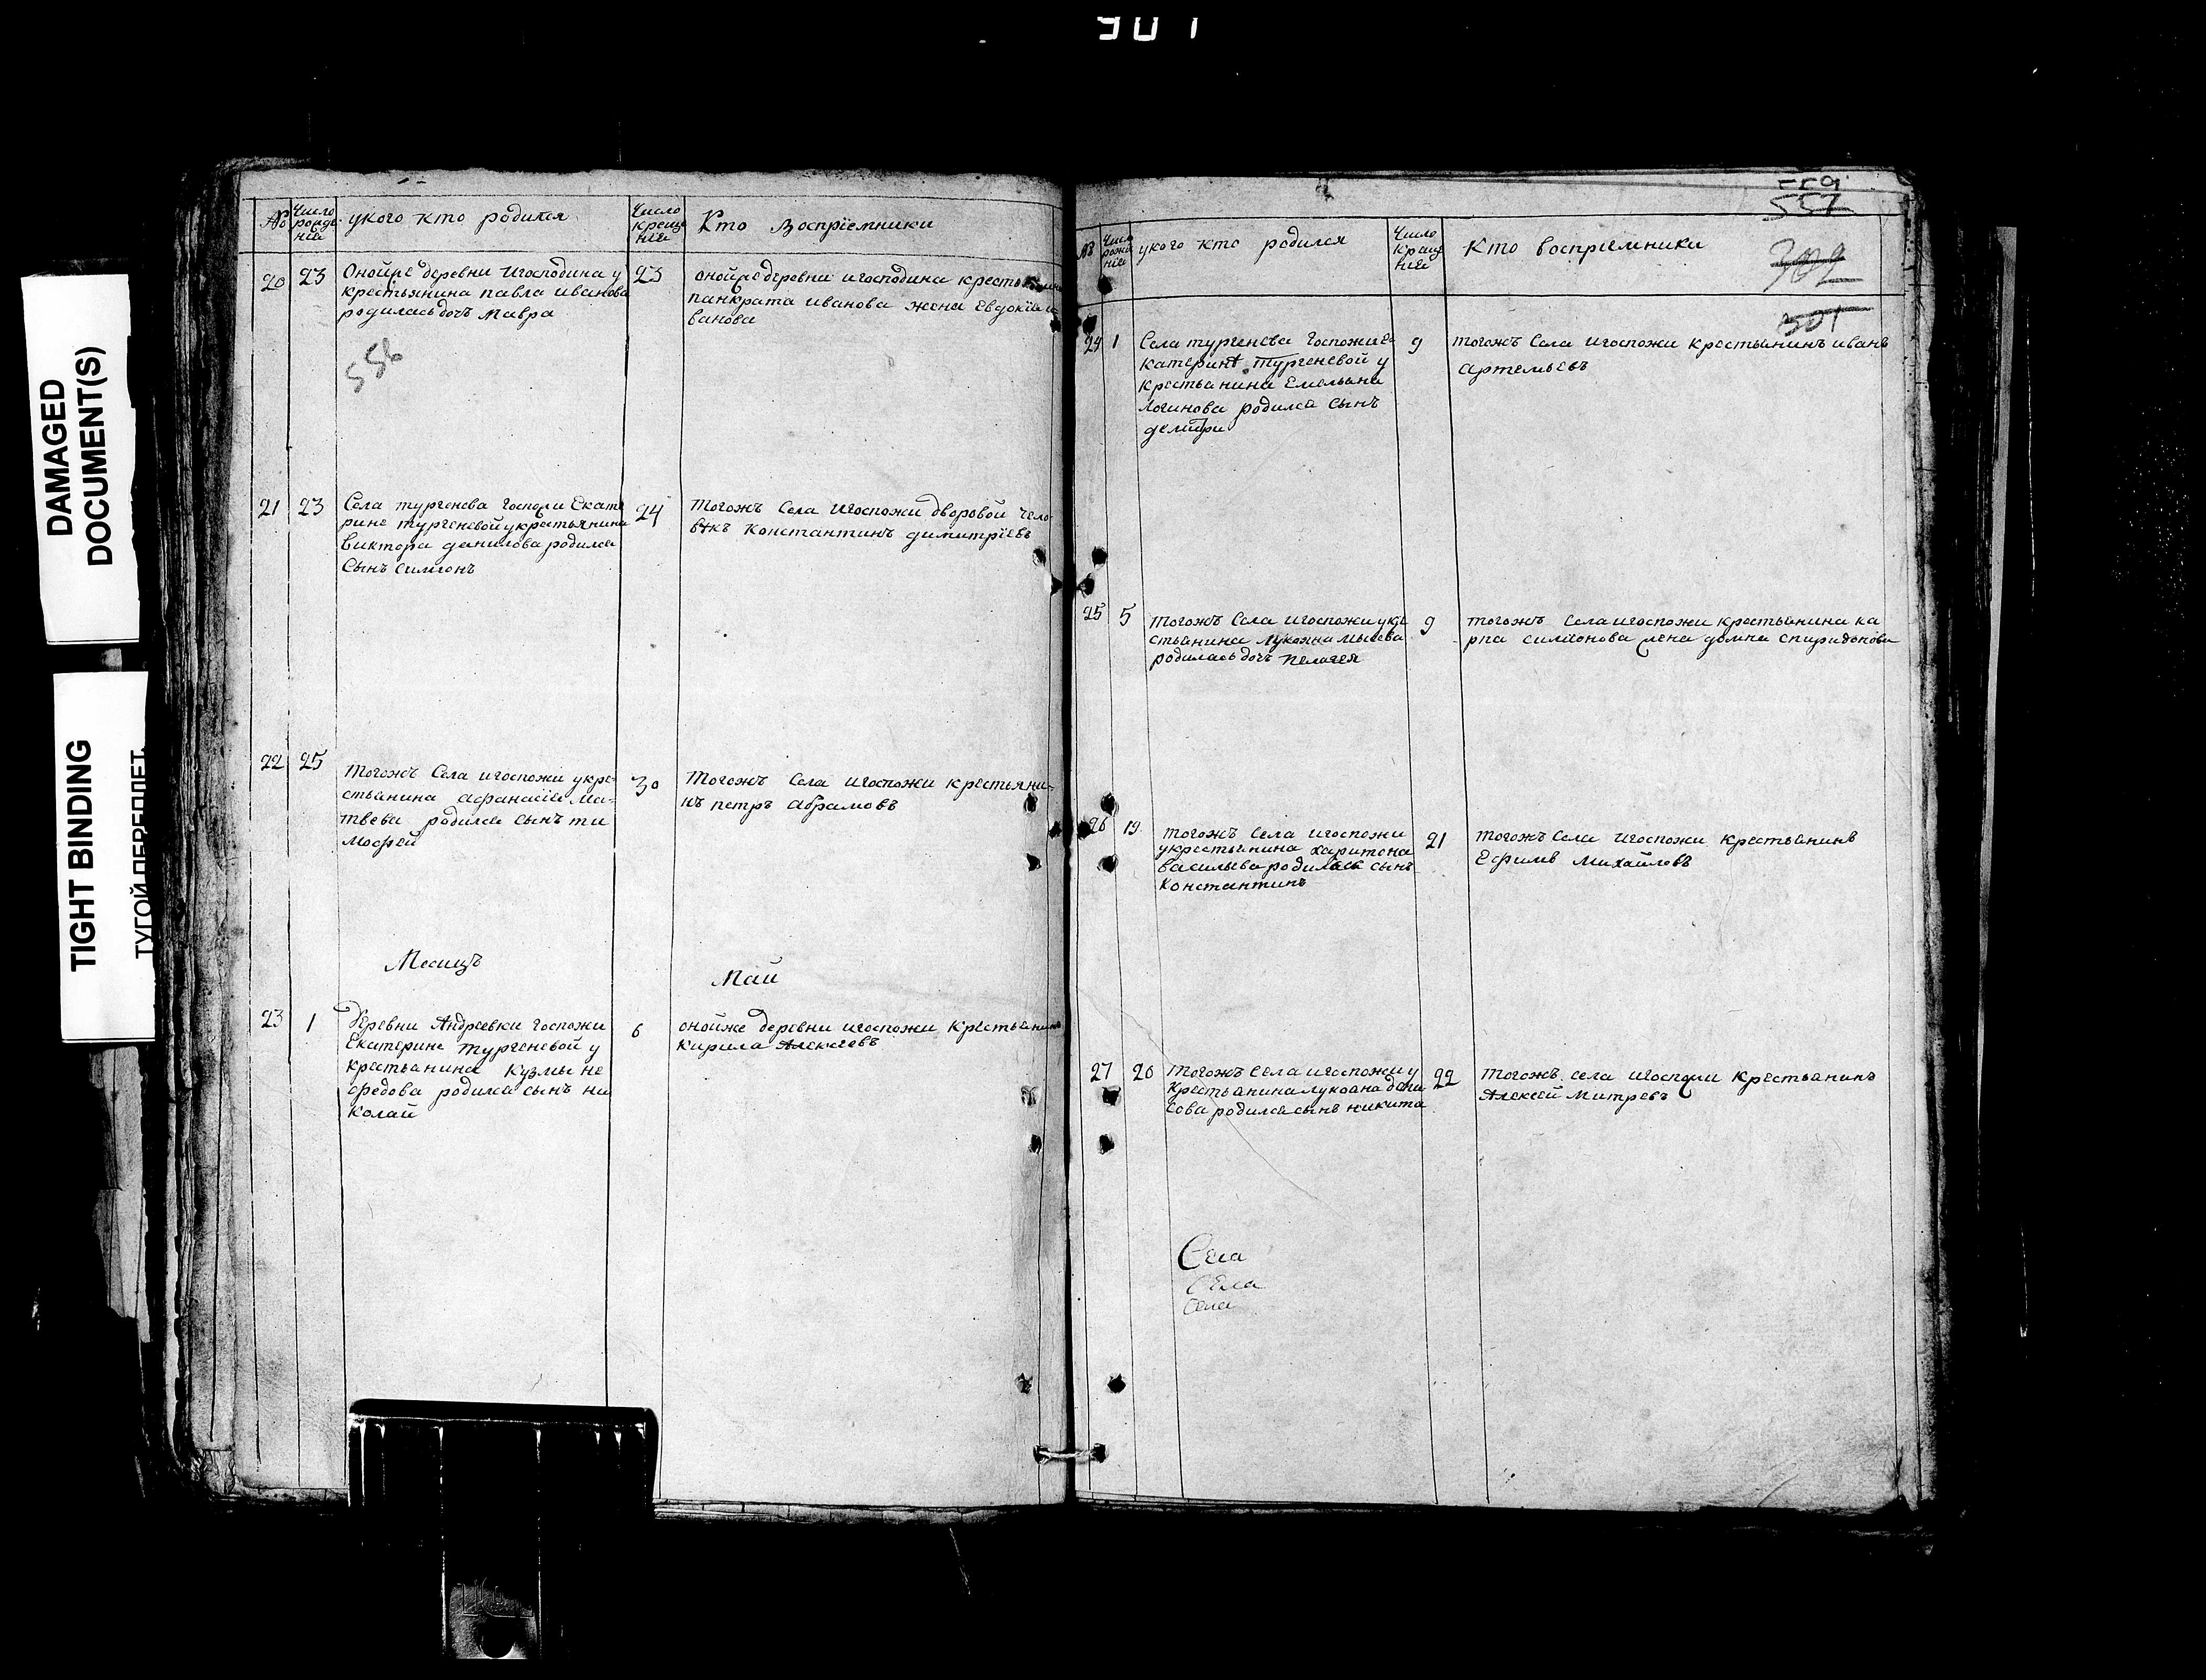 901
DAMAGED
DOCUMENT(S)
TIGHT BINDING
ТУГОЙ ПЕРЕПЛЕТ
№
Число рожденiя
укого кто родился
Число крещенiя
Кто Воспрiемники
20 23
Онойже деревни игосподина у
крестьянина павла иванова
родилась дочь Мавра
23
онойже деревни игосподина
панкрата иванова жена Евдокiя и
ванова
556
21 23
Села тургенева госпожи Екате
рине тургеневой укрестьянина
виктора данилова родился
Сынъ симионъ
24
Тогожъ Села игоспожи дворовой чело
вѣкъ Константинъ димитрiевъ
22 25
Тогожъ Села игоспожи укре
стьянина афанасiя Ма
твева родился сынъ ти
мофей
30
Тогожъ Села игоспожи крестьяни
нъ петръ абрамовъ
Месяцъ
Май
23 1
Деревни Андреевки госпожи
Екатерине Тургеневой у
крестьянина Кузмы не
федова родился сынъ ни
колай
6
онойже деревни игоспожи крестьянинъ
Кирила Алексеевъ
559
557
301
№
Число рожденiя
укого кто родился
Число крещенiя
Кто воспрiемники
24 1
Села тургенева госпожи Е
катеринѣ Тургеневой у
крестьянина Емельяна
Логинова родился сынъ
демитри
9
тогожъ Села игоспожи крестьянинъ иванъ
артемьевъ
25 5
тогожъ Села игоспожи укре
стьянина
родилась дочь пелагея
9
тогожъ села игоспожи крестьянина ка
рпа симионова жена домна спиридонова
26 19
тогожъ Села игоспожи
укрестьянина харитона
васильева родился сынъ
Константинъ
21
тогожъ Села игоспожи крестьянинъ
Ефимъ Михайловъ
27 20
тогожъ Села игоспожи у
крестьянина
родился сынъ никита
22
тогожъ села игоспожи крестьянинъ
Алексей Митревъ
Села
Села
Села